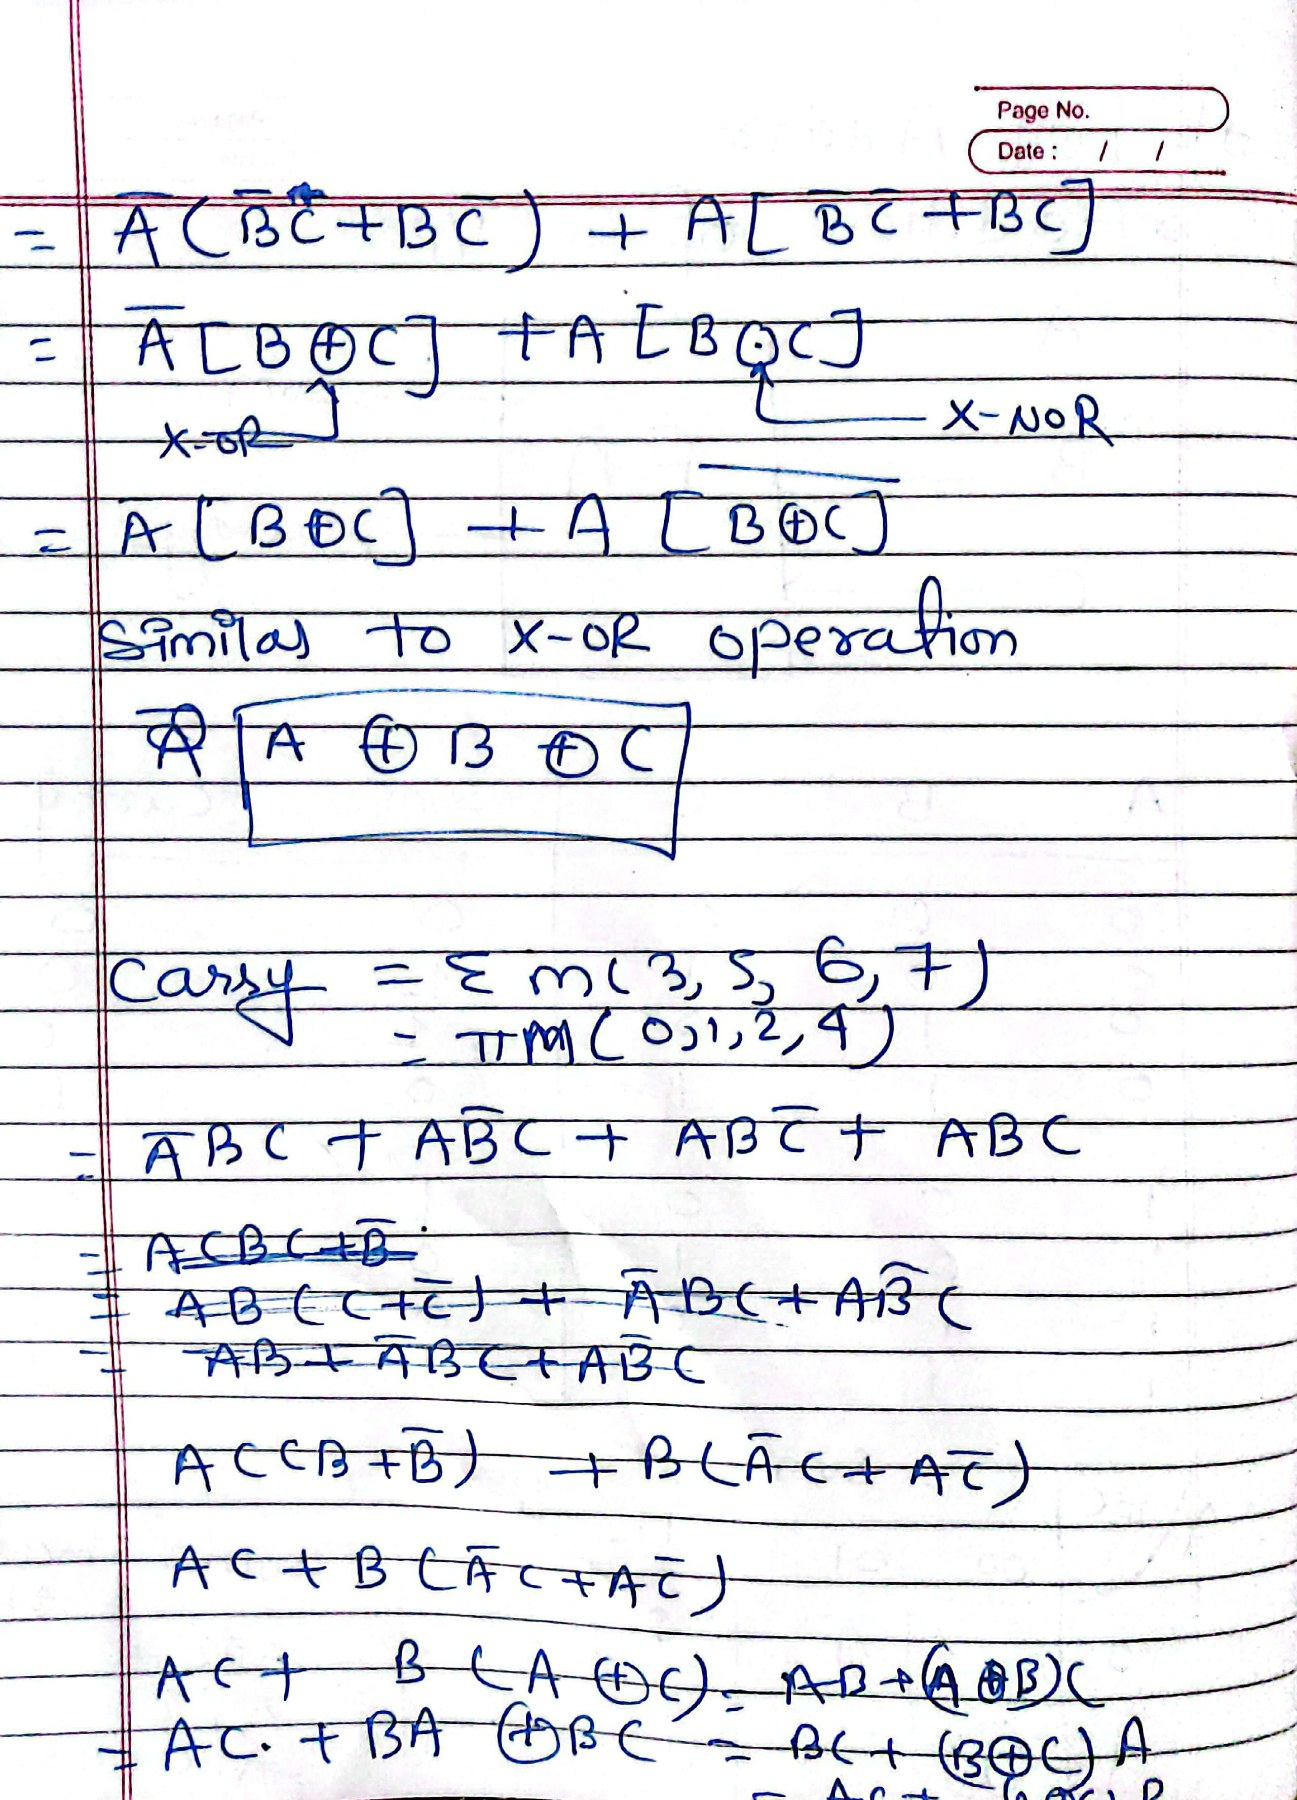 Page No.
Date : / /
= A̅ (B̅C + BC̅) + A [B̅C̅ + BC]
= A̅ [B ⊕ C] + A [B ⊙ C]
X-OR X-NOR
= A̅ [B ⊕ C] + A [B̅ ⊕̅ C̅]
Similar to X-OR operation
A ⊕ B ⊕ C
Carry = Σ m (3, 5, 6, 7)
= π M (0,1,2,4)
= A̅BC + AB̅C + ABC̅ + ABC
= A(BC+B̅
= AB (C+C̅) + A̅BC + AB̅C
= AB + A̅BC + AB̅C
AC(B + B̅) + B(A̅C + AC̅)
AC + B (A̅C + AC̅)
AC + B (A ⊕ C) = AB + (A ⊕ B)C
= AC. + BA ⊕ BC = BC + (B⊕C) A